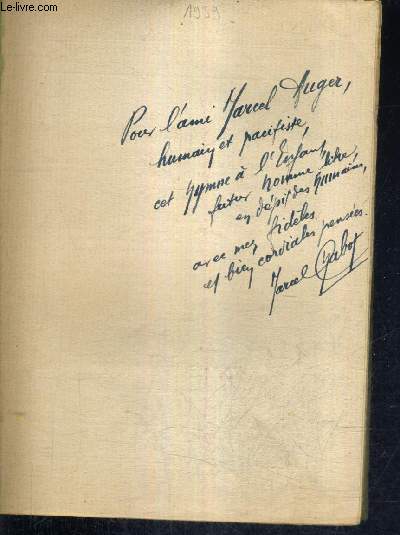 Le-livre.com
1959
Pour l'ami Marcel Auger,
humain et pacifiste,
cet hymne à l'Enfant,
futur homme libre,
en dépit des humains,
avec mes fidèles
et bien cordiales pensées.
Marcel Chabot